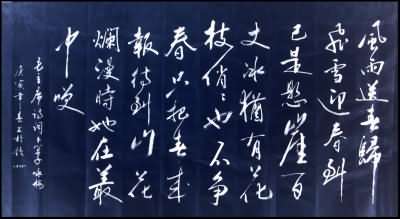 風雨送春歸
飛雪迎春到
已是懸崖百
丈冰猶有花
枝俏俏也不爭
春只把春來
報待到山花
爛漫時她在叢
中笑
毛主席詞卜算子咏梅